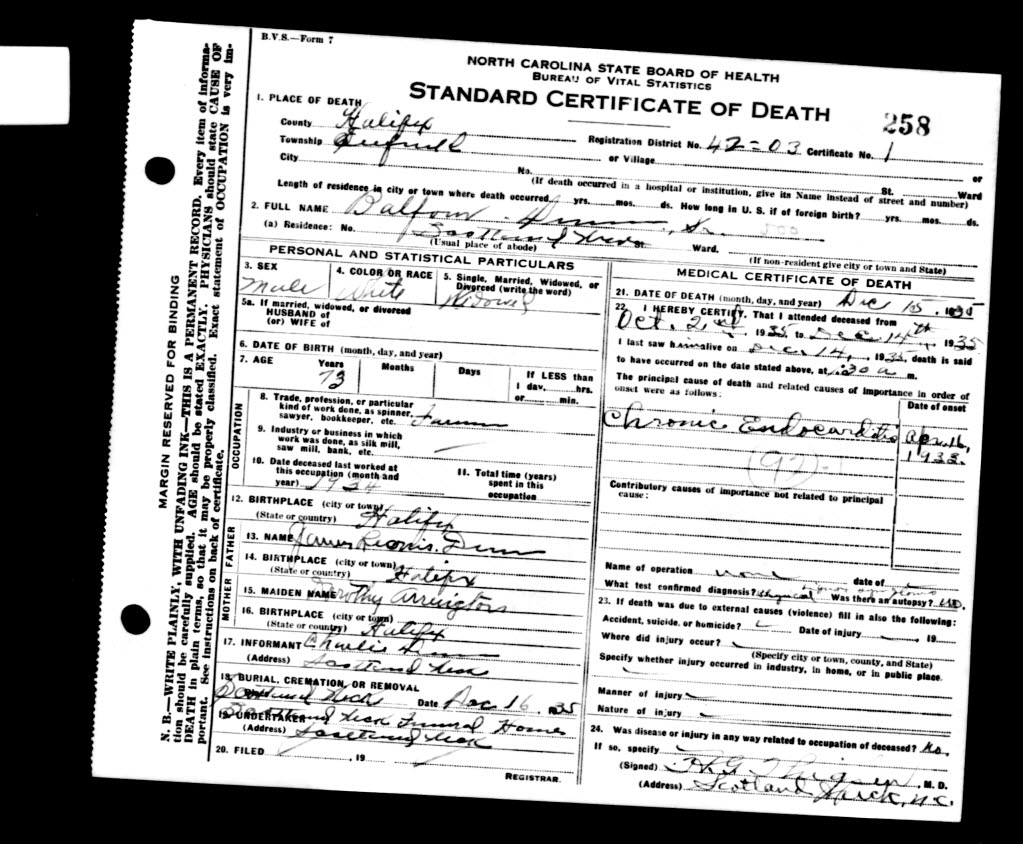 B.V.S.—Form 7
NORTH CAROLINA STATE BOARD OF HEALTH
BUREAU OF VITAL STATISTICS
STANDARD CERTIFICATE OF DEATH
258
1. PLACE OF DEATH
County Halifax
Township
Registration District No. 42-03 Certificate No. 1
City or Village or
No. St. Ward
(If death occurred in a hospital or institution, give its Name instead of street and number)
Length of residence in city or town where death occurred yrs. mos. ds. How long in U. S. if of foreign birth? yrs. mos. ds.
2. FULL NAME Balfour Dunn, Sr.
(a) Residence: No. Scotland Neck St. Ward.
(Usual place of abode)
(If non-resident give city or town and State)
PERSONAL AND STATISTICAL PARTICULARS
3. SEX
Male
4. COLOR OR RACE
White
5. Single, Married, Widowed, or Divorced (write the word)
Widowed
5a. If married, widowed, or divorced
HUSBAND of
(or) WIFE of
6. DATE OF BIRTH (month, day, and year)
7. AGE Years Months Days If LESS than
73
1 day, hrs.
or min.
OCCUPATION
8. Trade, profession, or particular
kind of work done, as spinner,
sawyer, bookkeeper, etc. Farmer
9. Industry or business in which
work was done, as silk mill,
saw mill, bank, etc.
10. Date deceased last worked at
this occupation (month and
year) 1934
11. Total time (years)
spent in this
occupation
12. BIRTHPLACE (city or town)
(State or country) Halifax
FATHER
13. NAME James Dunn
14. BIRTHPLACE (city or town)
(State or country) Halifax
MOTHER
15. MAIDEN NAME Dorothy Arrington
16. BIRTHPLACE (city or town)
(State or country) Halifax
17. INFORMANT Charlie Dunn
(Address) Scotland Neck
18. BURIAL, CREMATION, OR REMOVAL
Scotland Neck Date Dec 16, 1935
19. UNDERTAKER Scotland Neck Funeral Home
(Address) Scotland Neck
20. FILED , 19
REGISTRAR.
MEDICAL CERTIFICATE OF DEATH
21. DATE OF DEATH (month, day, and year) Dec 15, 1935
22. I HEREBY CERTIFY, That I attended deceased from
Oct. 2nd, 1935 to Dec 14th, 1935
I last saw him alive on Dec. 14, 1935, death is said
to have occurred on the date stated above, at :30 a m.
The principal cause of death and related causes of importance in order of
onset were as follows:
Date of onset
Chronic Endocarditis
Apr. 16,
1933.
(92)-1
Contributory causes of importance not related to principal
cause:
Name of operation none date of
What test confirmed diagnosis? Physical Was there an autopsy? No.
23. If death was due to external causes (violence) fill in also the following:
Accident, suicide, or homicide? Date of injury , 19
Where did injury occur?
(Specify city or town, county, and State)
Specify whether injury occurred in industry, in home, or in public place.
Manner of injury
Nature of injury
24. Was disease or injury in any way related to occupation of deceased? No.
If so, specify
(Signed) M. D.
(Address) Scotland Neck, N.C.
MARGIN RESERVED FOR BINDING
N. B.—WRITE PLAINLY, WITH UNFADING INK—THIS IS A PERMANENT RECORD. Every item of informa-
tion should be carefully supplied. AGE should be stated EXACTLY. PHYSICIANS should state CAUSE OF
DEATH in plain terms, so that it may be properly classified. Exact statement of OCCUPATION is very im-
portant. See instructions on back of certificate.